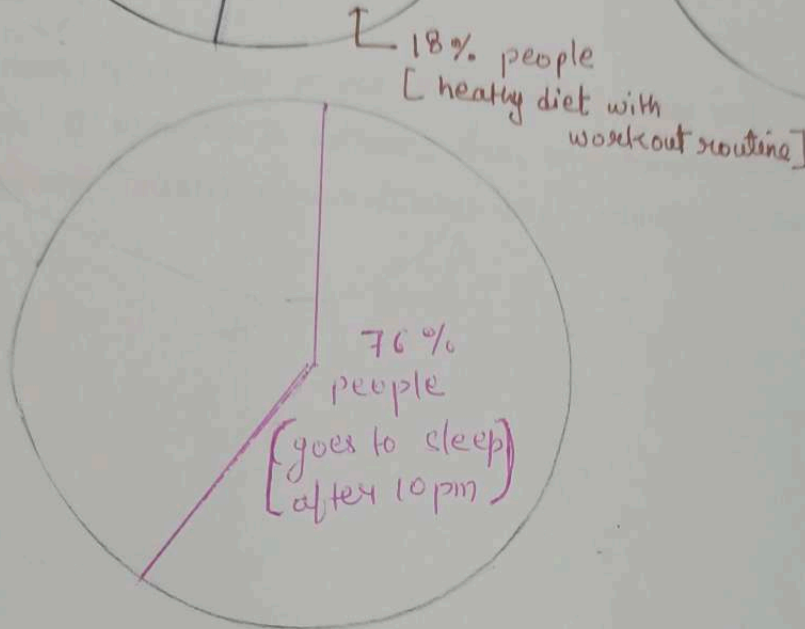 18% people
[ heathy diet with
workout routine]
76%
people
[goes to sleep
after 10 pm]